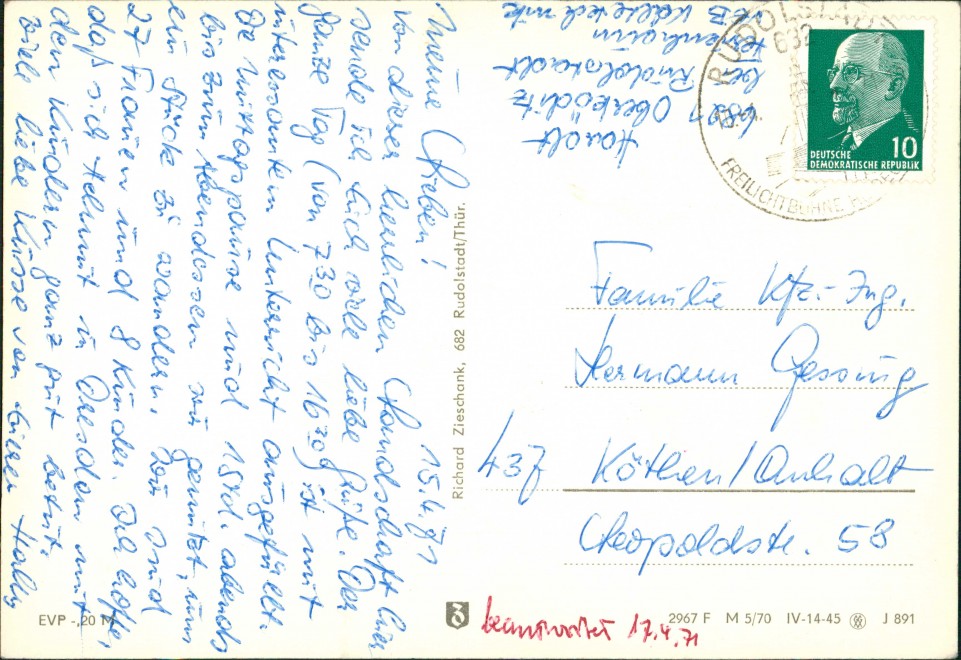 Harolt
6821 Oberköditz
bei Rudolstadt
Ferienheim
VEB Kältetechnik
15.4.71
Meine Lieben!
Von dieser lieblichen Landschaft hier
sende ich Euch viele liebe Grüße. Der
ganze Tag (von 730 bis 1630) ist mit
interessantem Unterricht ausgefüllt.
Die Mittagspause und 1 Std. abends
bis zum Abendessen wird genutzt, um
ein Stück zu wandern. Wir sind
27 Frauen und 8 Kinder. Ich hoffe,
daß sich Helmut in Dresden mit
den Kindern ganz gut betut.
Viele liebe Küsse von Eurer
RUDOLSTADT
FREILICHTBÜHNE
DEUTSCHE
DEMOKRATISCHE REPUBLIK
10
Richard Zieschank, 682 Rudolstadt/Thür.
Familie Kfz.-Ing.
Hermann Gessing
437 Köthen/Anhalt
Leopoldstr. 58
beantwortet 17.4.71
EVP -,20 M
2967 F M 5/70 IV-14-45 J 891